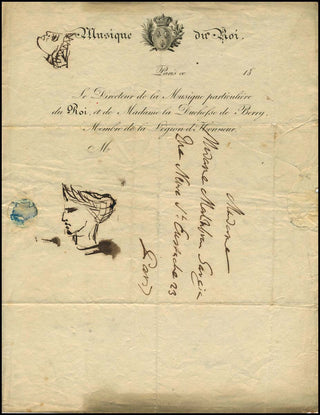 Musique du Roi.
Paris ce 18
Le Directeur de la Musique particulière
du Roi et de Madame la Duchesse de Berry,
Membre de la Légion d'Honneur
M.
Madame
Madame Malibran Garcia
Rue Neuve St Eustache 23
Paris